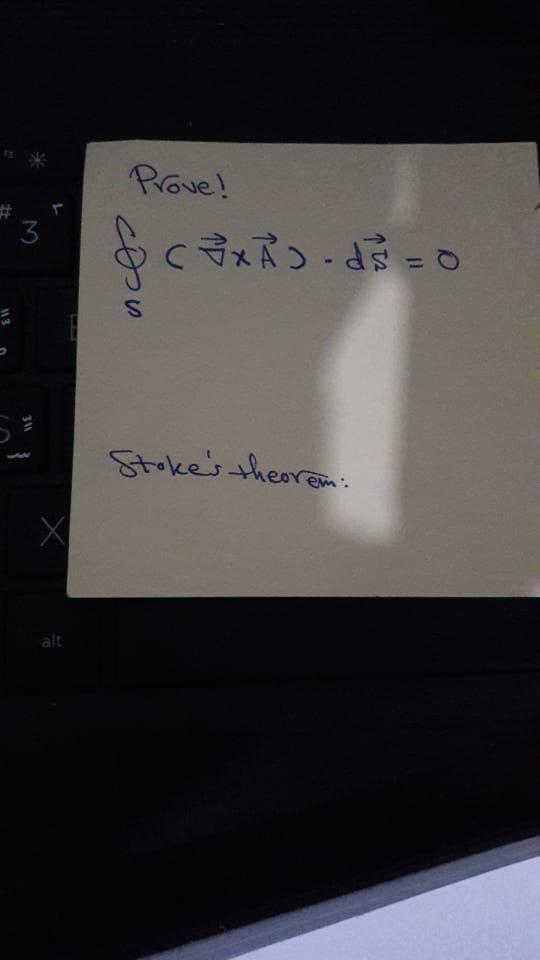 Prove!
∮ ( ∇⃗ x A⃗ ) · dS⃗ = 0
S
Stoke's theorem:
*
#
3
X
alt